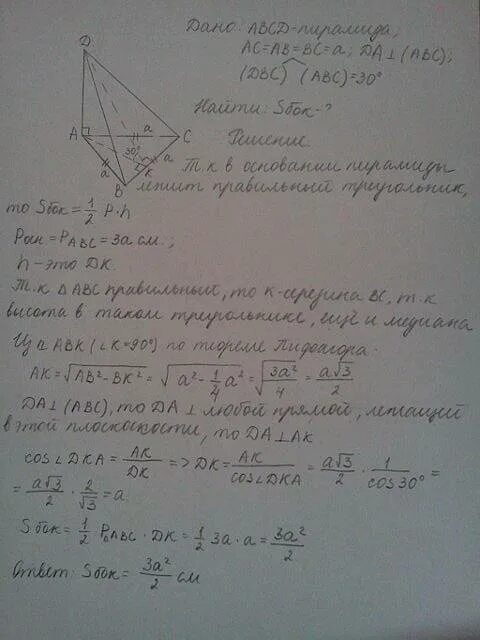 Дано: ABCD-пирамида,
AC=AB=BC=a; DA⊥(ABC);
(DBC) (ABC)=30°
Найти: Sбок-?
Решение.
Т.к в основании пирамиды
лежит правильный треугольник,
то Sбок=1/2 P·h
Pосн=P_ABC=3a см.;
h-это DK.
Т.к ΔABC правильный, то K-середина BC, т.к
высота в таком треугольнике, ещё и медиана
Из ⊿ ABK (∠K=90°) по теореме Пифагора:
AK=√(AB²-BK²)=√(a²-1/4 a²)=√(3a²/4)=a√3/2
DA⊥(ABC), то DA⊥ любой прямой, лежащей
в этой плоскости, то DA⊥AK.
cos∠DKA=AK/DK => DK=AK/cos∠DKA=a√3/2·1/cos30°=
=a√3/2·2/√3=a.
Sбок=1/2 P_ABC·DK=1/2 3a·a=3a²/2
Ответ: Sбок=3a²/2 см
D
A
a
C
30°
a
K
a
B